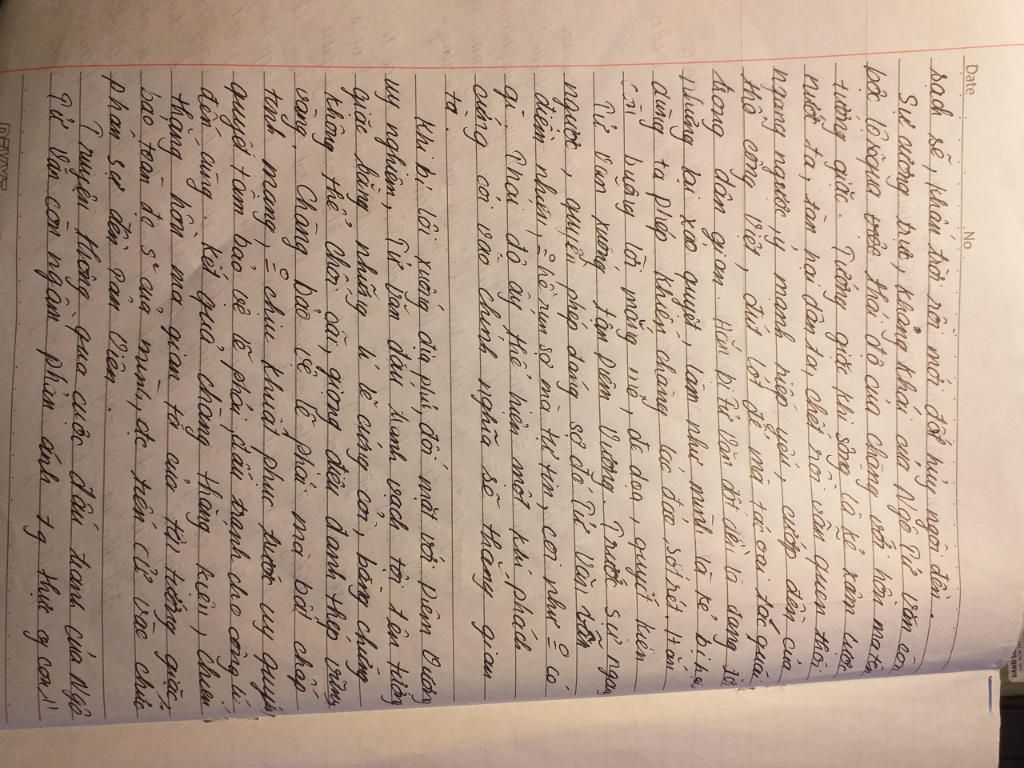 Date No.
sạch sẽ, khấn trời rồi mới đốt huỷ ngôi đền.
Sự cương trực, khẳng khái của Ngô Tử Văn còn
bộc lộ qua thái độ của chàng với hồn ma tên
tướng giặc. Tướng giặc khi sống là kẻ xâm lược
nước ta, tàn hại dân ta, chết rồi vẫn quen thói
ngang ngược ỷ mạnh hiếp yếu, cướp đền của
thổ công Việt, đút lót để mà tác oai tác quái
trong dân gian. Hắn bị Tử Văn đốt đền là đáng
nhưng lại xảo quyệt, làm như mình là kẻ bị hại,
dùng tà phép khiến chàng lảo đảo, sốt rét. Hắn
còn buông lời mắng mỏ, đe doạ, quyết kiện
Tử Văn xuống tận Diêm Vương. Trước sự ngang
ngược, quyền phép đáng sợ đó Tử Văn vẫn
điềm nhiên, = hề run sợ mà tự tin, coi như = có
gì. Thái độ ấy thể hiện một khí phách
cứng cỏi vào chính nghĩa sẽ thắng gian
tà.
Khi bị lôi xuống địa phủ, đối mặt với Diêm Vương
uy nghiêm, Tử Văn đấu tranh vạch tội tên tướng
giặc bằng những lí lẽ cứng cỏi, bằng chứng
không thể chối cãi, giọng điệu đanh thép vững
vàng. Chàng bảo vệ lẽ phải mà bất chấp
tính mạng, = chịu khuất phục trước uy quyền
quyết tâm bảo vệ lẽ phải, đấu tranh cho công lí
đến cùng. Kết quả, chàng thắng kiện, chiến
thắng hồn ma gian tà của tên tướng giặc,
bảo toàn đc sự của mình, đc tiến cử vào chức
phán sự đền Tản Viên.
Truyện không qua cuộc đấu tranh của Ngô
Tử Văn còn ngầm phản ánh t/g thực cõi con